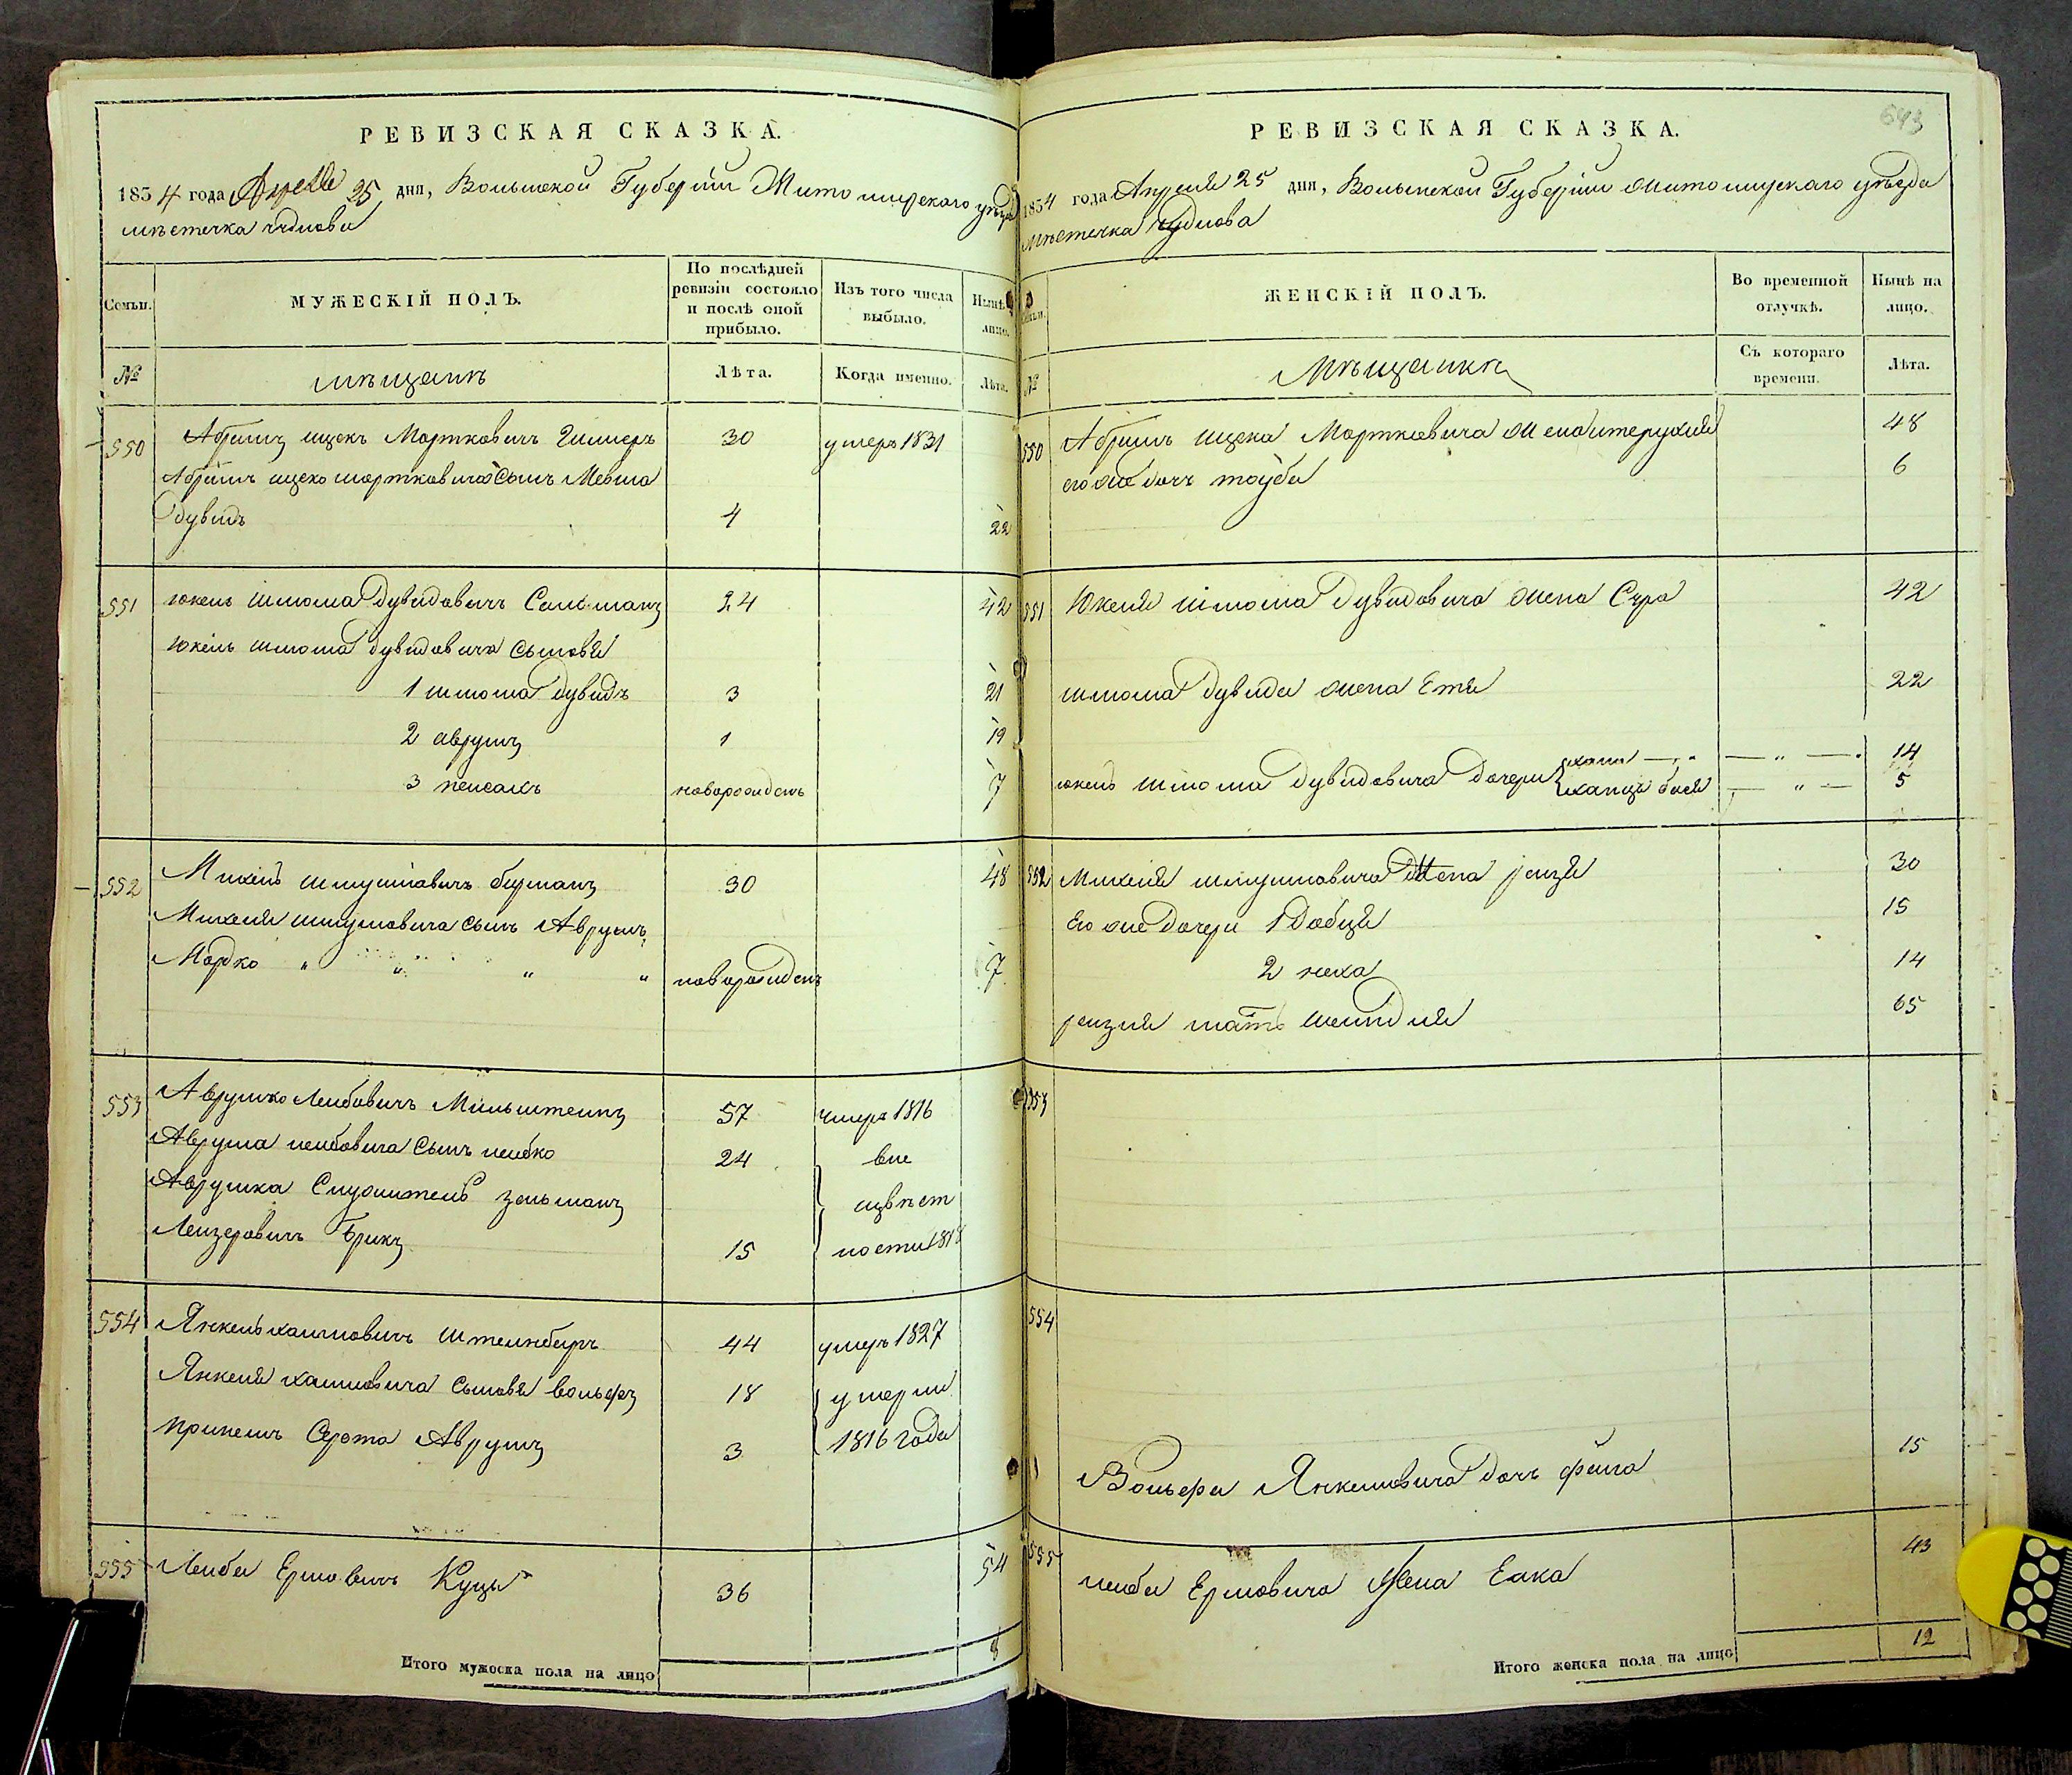 РЕВИЗСКАЯ СКАЗКА.
1854 года Апреля 25 дня, Волынской Губерніи Житомирского уѣзда
мѣстечка Чуднова
Семьи.
МУЖЕСКІЙ ПОЛЪ.
По послѣдней ревизіи состояло и послѣ оной прибыло.
Изъ того числа выбыло.
Нынѣ на лицо.
№
мѣщанъ
Лѣта.
Когда именно.
Лѣта.
550 Абрамъ ицекъ Мортковичъ 30 умеръ 1831
Абрамъ ицека мортковича сынъ
Дувидъ 4 22
551 юкель шлома Дувидовичъ 24 42
юкель шлома Дувидовича сыновя
1 шлома Дувидъ 3 21
2 аврумъ 1 19
3 пейсахъ новорожденъ 7
552 Михель шмулiовичъ берманъ 30 48
Михеля шмулиовича сынъ Аврумъ
Мордко " " " " новорожденъ 7
553 Аврумко Лейбовичъ Мильштейнъ 57 умеръ 1816
Аврума лейбовича сынъ лейбко 24 вне
Аврумка Служитель зельманъ извѣст
Лейзеровичъ Брикъ 15 ности 1818
554 Янкель хаимовичъ штейнберъ 44 умеръ 1827
Янкеля хаимовича сыновя вольфъ 18 умерли
прiемышъ Сърота Аврумъ 3 1816 года
555 Лейба Ершовичъ Куцы 36 54
Итого мужеска пола на лицо 8
643
РЕВИЗСКАЯ СКАЗКА.
1854 года Апреля 25 дня, Волынской Губерніи Житомирского уѣзда
мѣстечка Чуднова
Семьи.
ЖЕНСКІЙ ПОЛЪ.
Во временной отлучкѣ.
Нынѣ на лицо.
№
Мѣщанки
Съ котораго времени.
Лѣта.
550 Абрамъ ицека Мортковича жена 48
его же дочь тауба 6
551 Юкеля шлома Дувидовича жена Сура 42
шлома Дувида жена Етя 22
юкель шлома Дувидовича дочери хана — " — 14
ханця бася — " — 5
552 Михеля шмулиовича Жена рейзя 30
Его же дочери 1 Добця 15
2 неха 14
рейзи мать шейндля 65
553
554
Вольфа Янкелиовича дочь фейга 15
555 лейба Ершовича Жена Елка 43
Итого женска пола на лицо 12